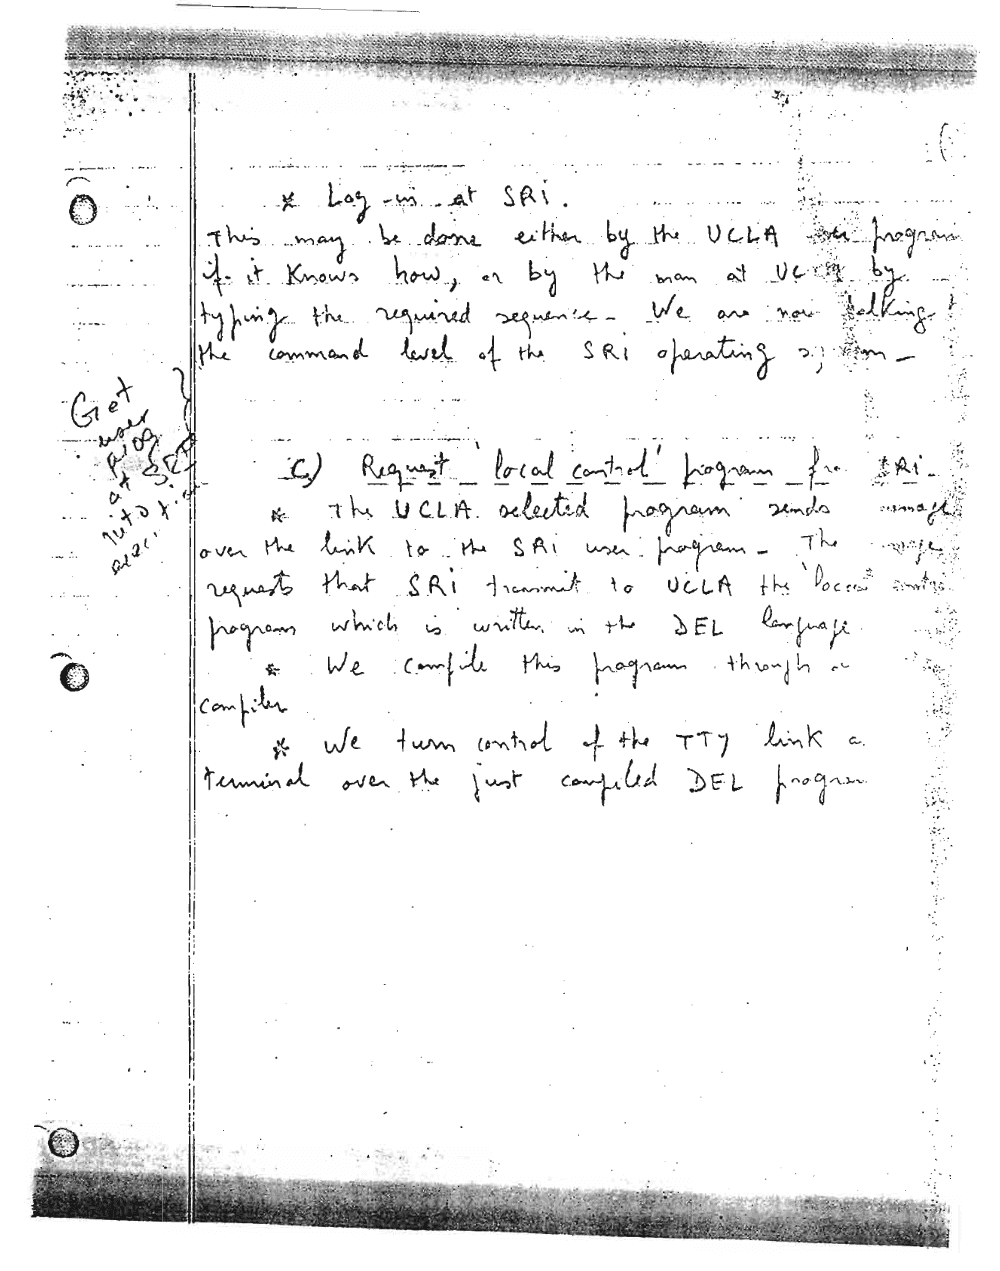 * Log-in at SRI.
This may be done either by the UCLA user program
if it knows how, or by the man at UCLA by
typing the required sequence. We are now talking
the command level of the SRI operating system.
Get
user
prog
at SRI
into
exec.
C) Request 'local control' program from SRI.
* The UCLA selected program sends message
over the link to the SRI user program. The message
requests that SRI transmit to UCLA the 'local control
program which is written in the DEL language
* We compile this program through a
compiler
* We turn control of the TTY link a
terminal over the just compiled DEL program